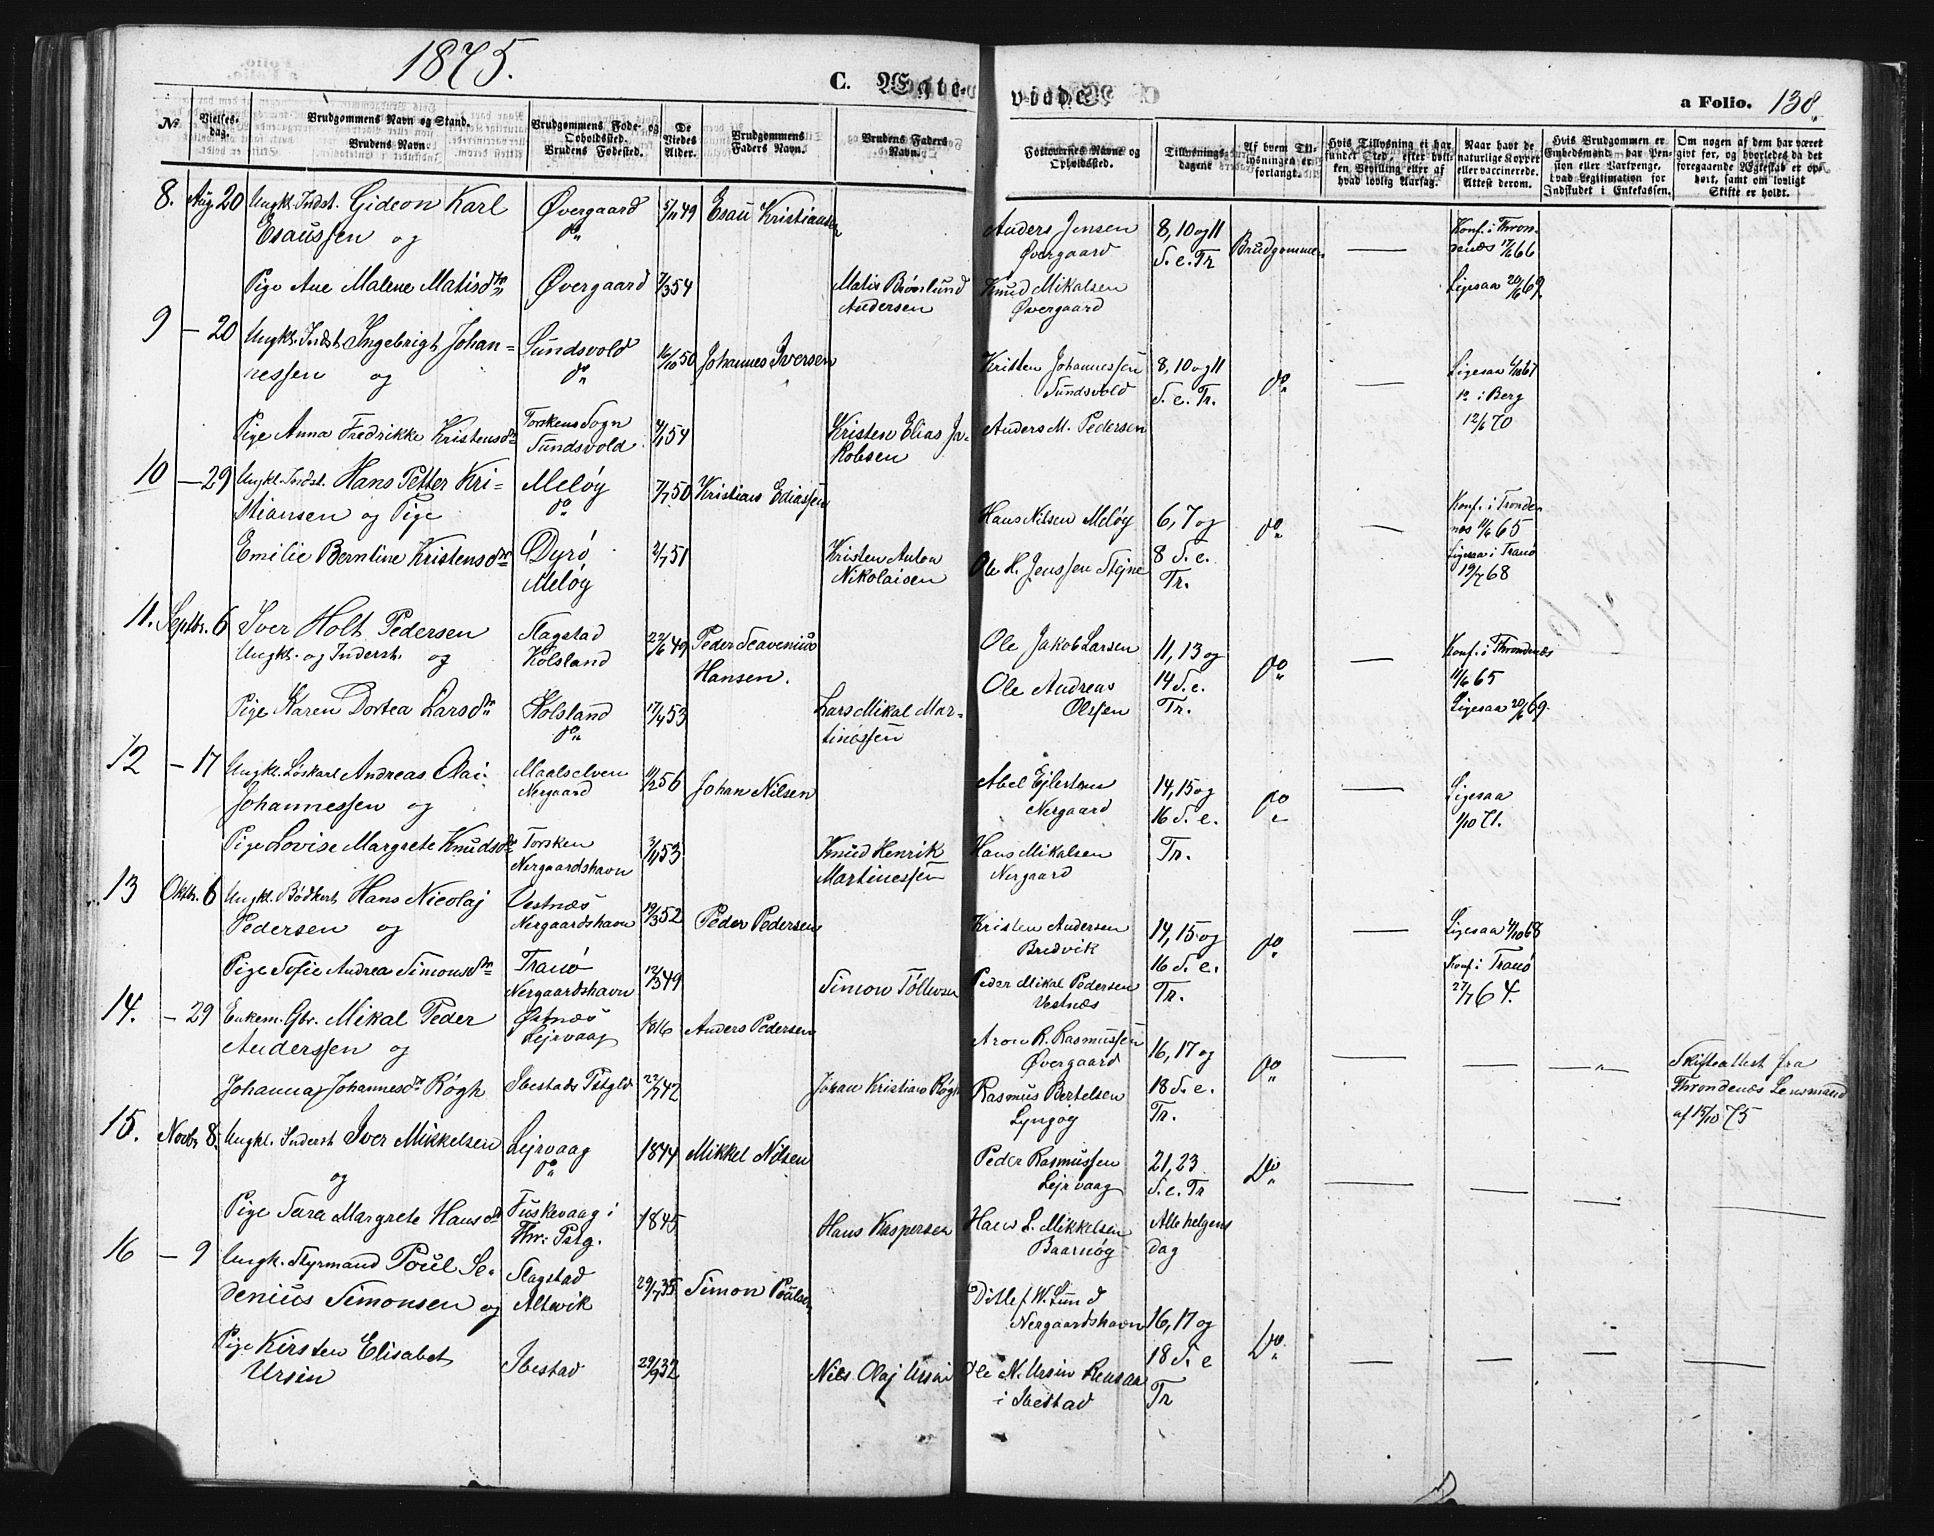 1875.
C. Ægte-
viede.
a Folio. 138.
No.
Vielses-
dag.
Brudgommens Navn og Stand.
Brudens Navn.
Brudgommens Føde- og
Opholdssted.
Brudens Fødested.
De
Viedes
Alder.
Brudgommens
Faders Navn.
Brudens Faders
Navn.
Forlovernes Navne og
Opholdssted.
Tillysnings-
dagene
Af hvem Til-
lysningen er
forlangt.
Hvis Tillysning ei har
fundet Sted, efter hvil-
ken Bevilling eller af
hvad lovlig Aarsag.
Naar havt de
naturlige Kopper
eller vaccinerede.
Attest derom.
Hvis Brudgommen er
Embedsmand, har Pen-
sion eller Vartpenge,
hvad Legitimation for
Indskudet i Enkekassen.
Om nogen af dem har været
gift før, og hvorledes da det
foregaaende Ægteskab er op-
hørt, samt om lovligt
Skifte er holdt.
8. Aug. 20 Ungkl. Indst. Gideon Karl
Esaussen og
Øvergaard
do
5/11 49 Esau Kristiansen
Anders Jensen
Øvergaard
8, 10 og 11
S. e. Tr
Brudgommen
Konf. i Thron-
denæs 17/6 66
Pige Ane Malene Matisdtr
Øvergaard
7/3 54
Matis Brønlund
Andersen
Knud Mikalsen
Øvergaard
Ligesaa 20/6 69
9 — 20 Ungkl. Indst. Ingebrigt Johan-
nessen og
Sundsvold
do
16/10 50 Johannes Iversen
Kristen Johannessen
Sundsvold
8, 10 og 11
S. e. Tr.
do
Ligesaa 6/10 67
do i Berg
12/6 70
Pige Anna Fredrikke Kristensdtr
Torskens Sogn
Sundsvold
54
Kristen Elias Ja-
kobsen
Anders M. Pedersen
10 — 29 Ungkl. Indst. Hans Petter Kri-
stiansen og Pige
Meløy
do
7/7 50 Kristian Ediassen
Hans Nilsen Meløy
6, 7 og
8 S. e.
Tr.
do
Konf. i Tronde-
næs 11/6 65
Emilie Berntine Kristensdtr
Dyrø
Meløy
2/7 51
Kristen Anton
Nikolaisen
Ole H. Jenssen Stejne
Ligesaa i Tranø
19/7 68
11. Septbr. 6 Iver Holt Pedersen
Ungkl. og Inderst. og
Flagstad
Kolsland
22/6 49 Peder Seavenius
Hansen.
Ole Jakob Larsen
11, 13 og
14 S. e.
Tr.
do
Konf. i Throndenæs
11/6 65
Pige Karen Dortea Larsdtr
Kolsland
do
17/4 53
Lars Mikal Mar-
tinessen
Ole Andreas
Olssen
Ligesaa 20/6 69
12 — 17 Ungkl. Løskarl Andreas Olai
Johannessen og
Maalselven
Nergaard
11/2 56 Johan Nilsen
Abel Ejlertsen
Nergaard
14, 15 og
16 S. e.
Tr.
do
Ligesaa
1/10 71.
Pige Lovise Margrete Knudsdtr
Torsken
Nergaardshavn
53
Knud Henrik
Martinessen
Hans Mikalsen
Nergaard
13 Oktbr. 6 Ungkl. Bødkers. Hans Nicolaj
Pedersen og
Vestnæs
Nergaardshavn
19/3 52 Peder Pedersen
Kristen Andersen
Bredvik
14, 15 og
16 S. e.
Tr.
do
Ligesaa 4/10 68
Pige Sofie Andrea Simonsdtr
Tranø
Nergaardshavn
12/3 49
Simon Tollevsen
Peder Mikal Pedersen
Vestnæs
Konf. i Tranø
27/7 64.
14. — 29 Enkem. Gbr. Mikal Peder
Anderssen og
Østnæs
Lejrvaag
1816 Anders Pedersen
Aron R. Rasmussen
Øvergaard
16, 17 og
18 S. e.
Tr.
do
Skifteattest fra
Throndenæs Lensmand
af 15/10 75
Johanna Johannesdtr Røgh
Ibestads Pstgld
22/7 42
Johan Kristian Røgh
Rasmus Bertelsen
Lyngøy
15. Novbr 8. Ungkl. Inderst Iver Mikkelsen
og
Lejrvaag
do
1844 Mikkel Nilsen
Peder Rasmussen
Lejrvaag
21, 23
S. e. Tr
Do
Pige Sara Margrete Hansdtr
Fuskevaag i
Thr. Pstg.
1845
Hans Kaspersen
Hans L. Mikkelsen
Baarnøy
Allehelgens
dag
16 — 9 Ungk. Styrmand Poul Se-
denius Simonsen og
Flagstad
Altevik
29/7 35 Simon Poulsen
Ditlef W. Lund
Nergaardshavn
16, 17 og
18 S. e
Tr
Do
Pige Kirsten Elisabet
Ursin
Ibestad
29/9 32
Nils Olaj Ursin
Ole N. Ursin Rensaa
i Ibestad